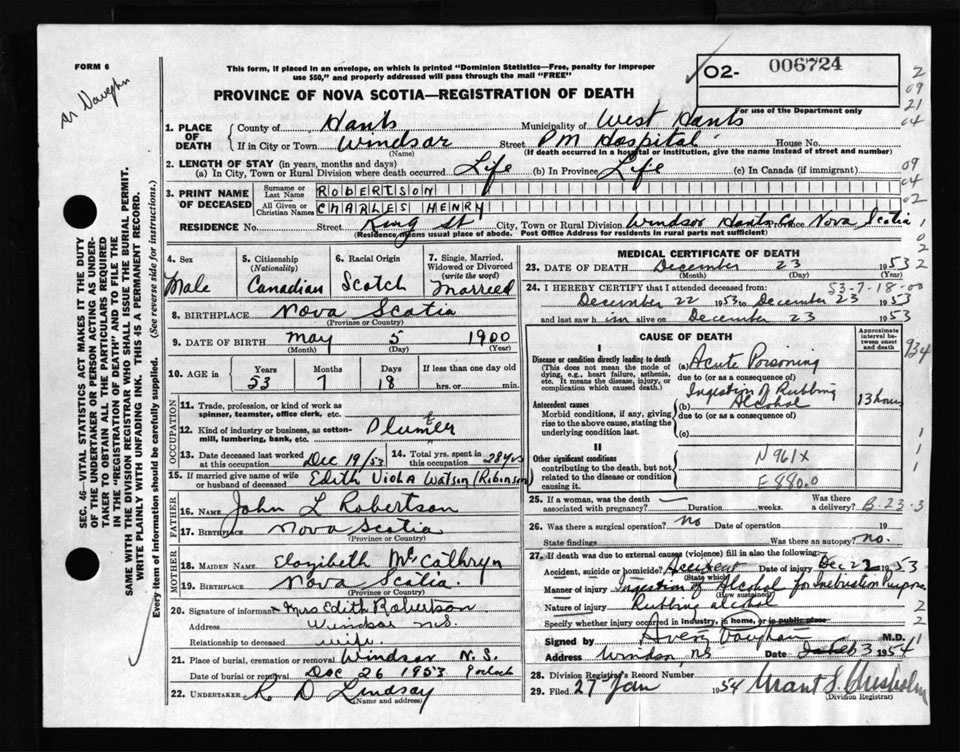 FORM 6
This form, if placed in an envelope, on which is printed "Dominion Statistics—Free, penalty for improper
use $50," and properly addressed will pass through the mail "FREE"
PROVINCE OF NOVA SCOTIA—REGISTRATION OF DEATH
O2- 006724
For use of the Department only
1. PLACE OF DEATH
County of Hants Municipality of West Hants
If in City or Town Windsor Street P M Hospital House No.
(Name) (If death occurred in a hospital or institution, give the name instead of street and number)
2. LENGTH OF STAY (in years, months and days)
(a) In City, Town or Rural Division where death occurred Life (b) In Province Life (c) In Canada (if immigrant)
3. PRINT NAME OF DECEASED
Surname or Last Name ROBERTSON
All Given or Christian Names CHARLES HENRY
RESIDENCE No. Street King St City, Town or Rural Division Windsor Hants Co Province Nova Scotia
(Residence means usual place of abode. Post Office Address for residents in rural parts not sufficient)
4. Sex Male
5. Citizenship (Nationality) Canadian
6. Racial Origin Scotch
7. Single, Married, Widowed or Divorced (write the word) Married
8. BIRTHPLACE Nova Scotia
(Province or Country)
9. DATE OF BIRTH May 5 1900
(Month) (Day) (Year)
10. AGE in Years 53 Months 7 Days 18 If less than one day old hrs. or min.
OCCUPATION
11. Trade, profession, or kind of work as spinner, teamster, office clerk, etc.
12. Kind of industry or business, as cotton-mill, lumbering, bank, etc. Plumber
13. Date deceased last worked at this occupation Dec 19/53
14. Total yrs. spent in this occupation 28 yrs
15. If married give name of wife or husband of deceased Edith Viola Watson (Robinson)
FATHER
16. Name John L Robertson
17. Birthplace Nova Scotia
(Province or Country)
MOTHER
18. MAIDEN NAME Elozibeth McCathryn
19. BIRTHPLACE Nova Scotia
(Province or Country)
20. Signature of informant Mrs Edith Robertson
Address Windsor N.S.
Relationship to deceased wife
21. Place of burial, cremation or removal Windsor N.S.
Date of burial or removal Dec 26 1953
22. UNDERTAKER K D Lindsay
(Name and address)
MEDICAL CERTIFICATE OF DEATH
23. DATE OF DEATH December 23 1953
(Month) (Day) (Year)
24. I HEREBY CERTIFY that I attended deceased from: 53-7-18-00
December 22 1953 to December 23 1953
and last saw h im alive on December 23 1953
CAUSE OF DEATH
Approximate interval between onset and death
I
Disease or condition directly leading to death
(This does not mean the mode of dying, e.g., heart failure, asthenia, etc. It means the disease, injury, or complication which caused death.)
(a) Acute Poisoning
due to (or as a consequence of)
Antecedent causes
Morbid conditions, if any, giving rise to the above cause, stating the underlying condition last.
(b) Ingestion of Rubbing Alcohol 13 hours
due to (or as a consequence of)
(c)
II
Other significant conditions
contributing to the death, but not related to the disease or condition causing it.
N 961X
E 880.0
25. If a woman, was the death associated with pregnancy? Duration weeks. Was there a delivery? B-23-3
26. Was there a surgical operation? No Date of operation 19
State findings Was there an autopsy? no.
27. If death was due to external causes (violence) fill in also the following:
Accident, suicide or homicide? Accident Date of injury Dec 22 1953
(State which)
Manner of injury Ingestion of Alcohol for Inebriation Purpose
(How sustained)
Nature of injury Rubbing alcohol
Specify whether injury occurred in industry, in home, or in public place
Signed by Avery Vaughan M.D.
Address Windsor, NS Date Feb 3 1954
28. Division Registrar's Record Number
29. Filed 27 Jan 1954 Grant S. Chisholm
(Division Registrar)
SEC. 46—VITAL STATISTICS ACT MAKES IT THE DUTY
OF THE UNDERTAKER OR PERSON ACTING AS UNDER-
TAKER TO OBTAIN ALL THE PARTICULARS REQUIRED
IN THE "REGISTRATION OF DEATH" AND TO FILE THE
SAME WITH THE DIVISION REGISTRAR WHO SHALL ISSUE THE BURIAL PERMIT.
WRITE PLAINLY WITH UNFADING INK. THIS IS A PERMANENT RECORD.
Every item of information should be carefully supplied. (See reverse side for instructions.)
2
09
21
04
09
04
02
1
0
2
2
934
1
1
1
2
2
1